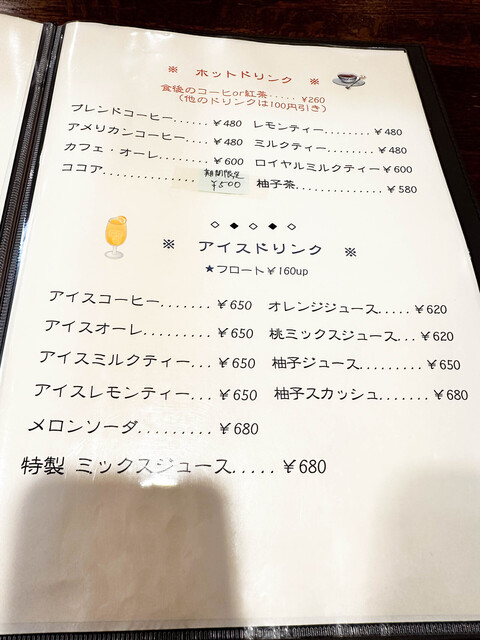 ※ ホットドリンク ※
食後のコーヒor紅茶..... ¥260
(他のドリンクは100円引き)
ブレンドコーヒー...... ¥480
アメリカンコーヒー.... ¥480
カフェ・オーレ........ ¥600
ココア............. 期間限定 ¥500
レモンティー........ ¥480
ミルクティー........ ¥480
ロイヤルミルクティー ¥600
柚子茶............. ¥580
◇ ◆ ◇ ◆ ◇
※ アイスドリンク ※
★フロート¥160up
アイスコーヒー....... ¥650
アイスオーレ......... ¥650
アイスミルクティー... ¥650
アイスレモンティー... ¥650
メロンソーダ......... ¥680
特製 ミックスジュース..... ¥680
オレンジジュース..... ¥620
桃ミックスジュース... ¥620
柚子ジュース......... ¥650
柚子スカッシュ....... ¥680